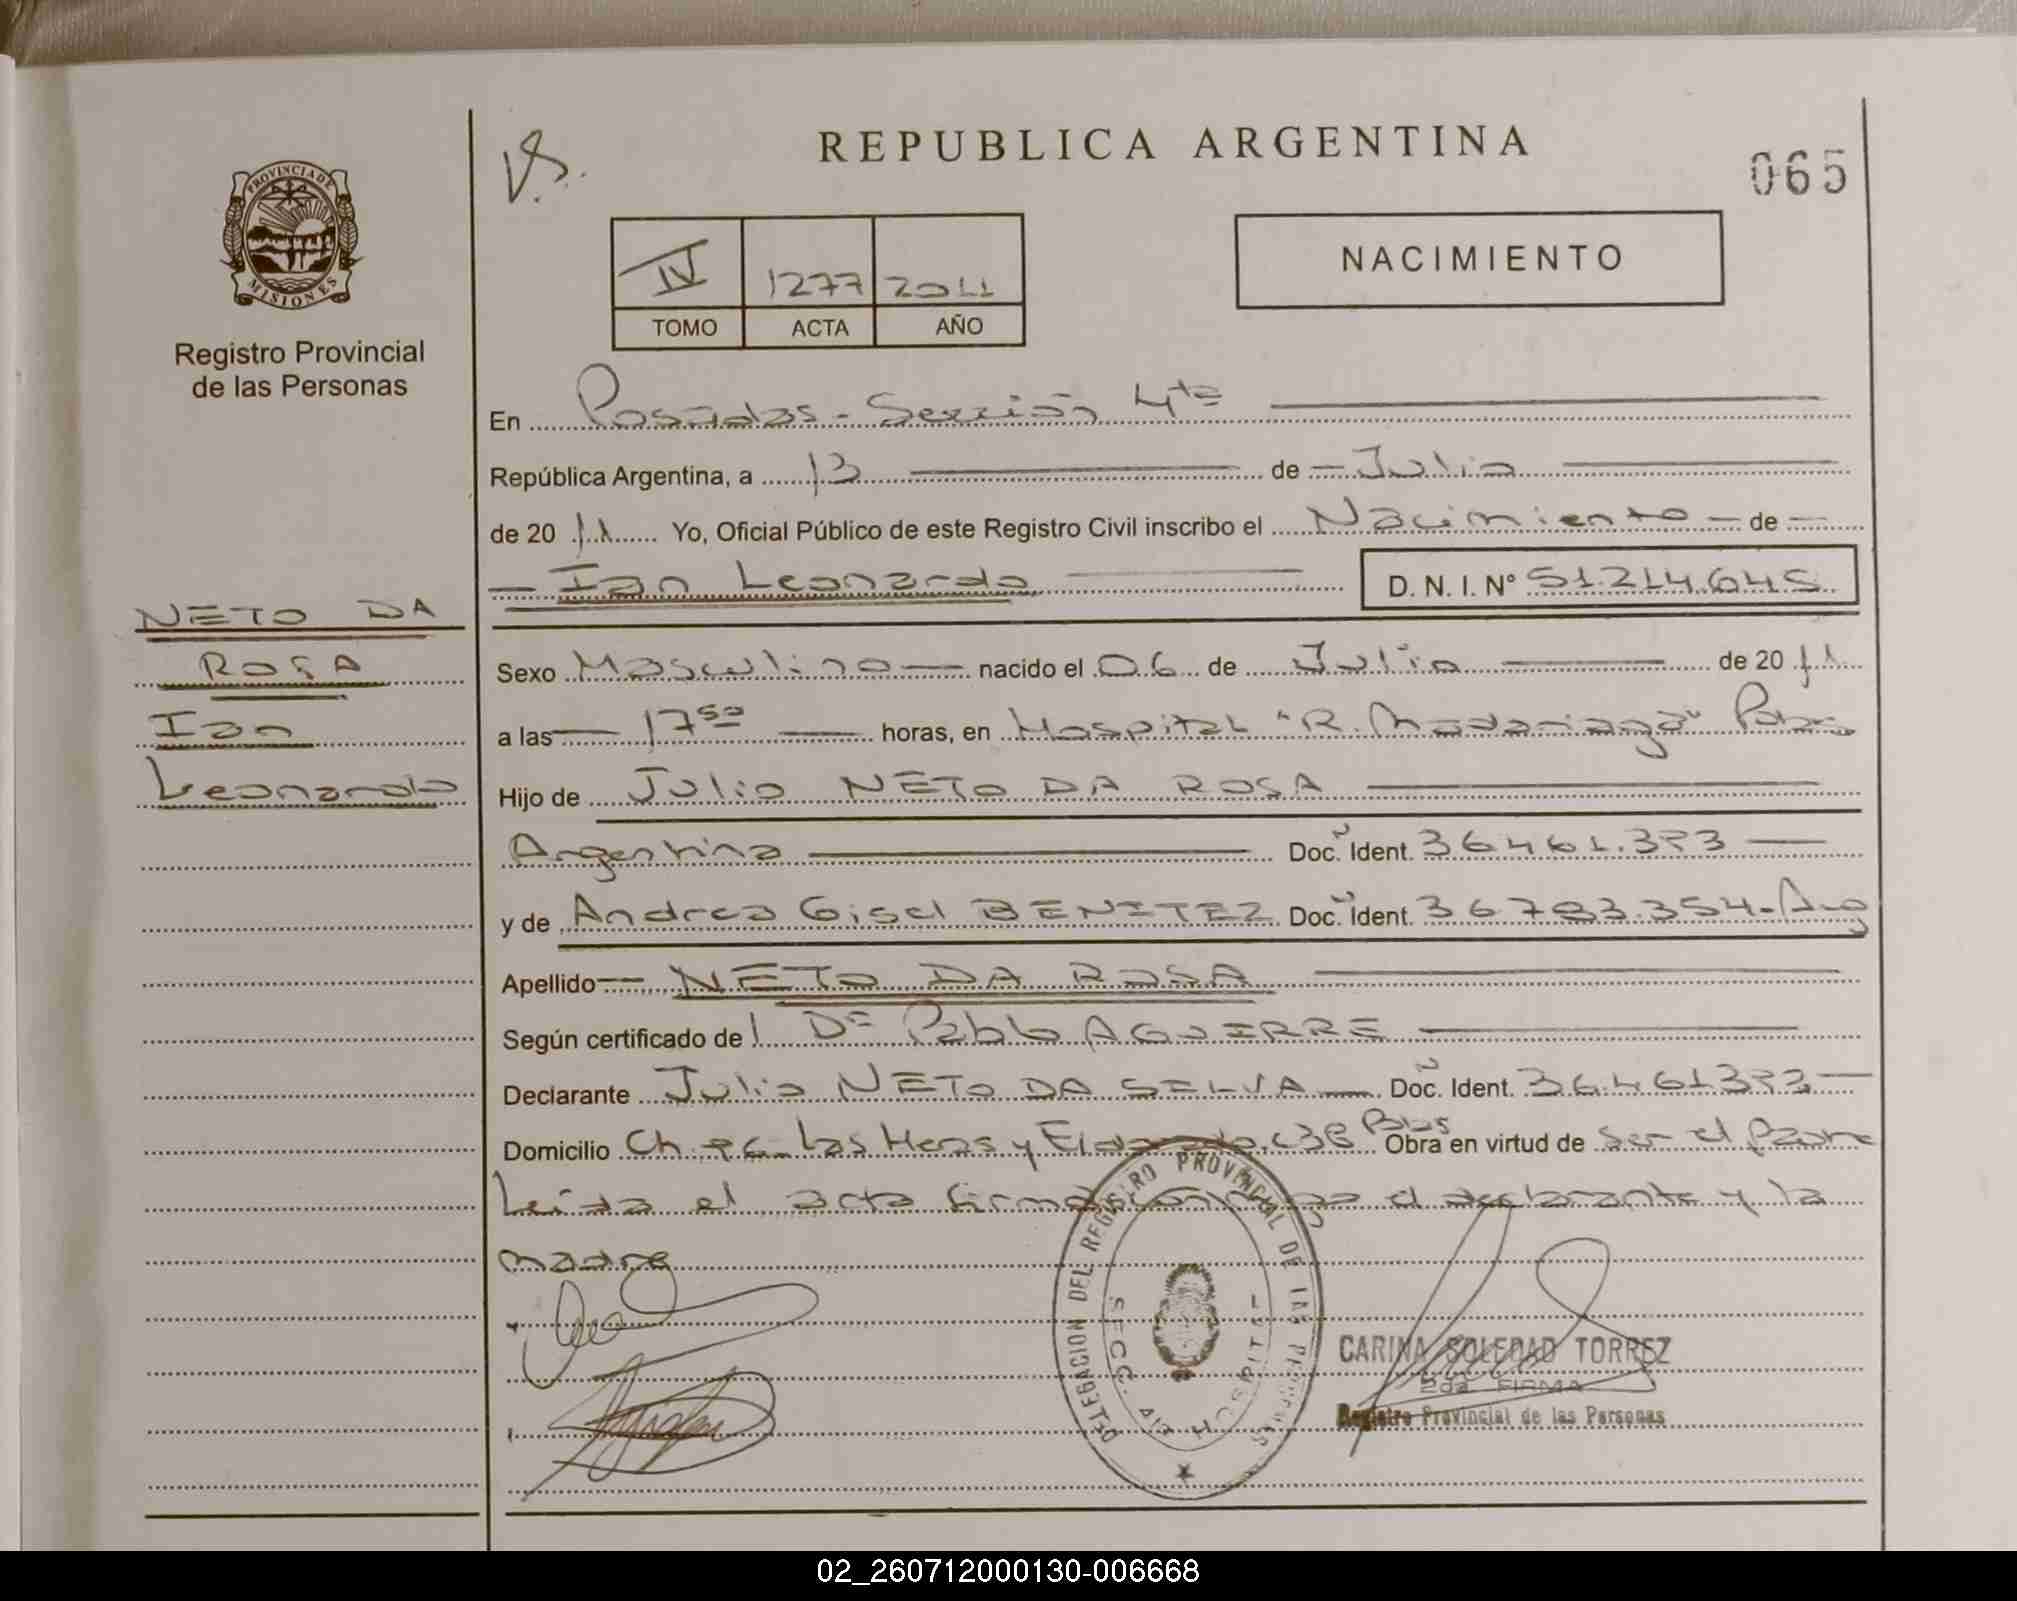 REPUBLICA ARGENTINA
065
PROVINCIA DE
MISIONES
Registro Provincial
de las Personas
IV 1277 2011
TOMO ACTA AÑO
NACIMIENTO
En Posadas - Sección 4ta
República Argentina, a 13 de Julio
de 20 11 Yo, Oficial Público de este Registro Civil inscribo el Nacimiento de
Ian Leonardo D. N. I. N° 51.214.645
NETO DA
ROSA
Ian
Leonardo
Sexo Masculino nacido el 06 de Julio de 20 11
a las 17 50 horas, en Hospital "R. Madariaga"
Hijo de Julio NETO DA ROSA
Argentina Doc. Ident. 36461.323
y de Andrea Gisel BENITEZ Doc. Ident. 36783.354. Arg
Apellido NETO DA ROSA
Según certificado de l Dr Pablo AGUIRRE
Declarante Julio NETO DA SELVA Doc. Ident. 36.461323
Domicilio Ch. Las Heras y Eldorado Obra en virtud de ser el Padre
Leida el acta firma conmigo el declarante y la
madre
DELEGACION DEL REGISTRO PROVINCIAL DE LAS PERSONAS
SECC. 4ta HOSPITAL
CARINA SOLEDAD TORREZ
2da FIRMA
Registro Provincial de las Personas
02_260712000130-006668